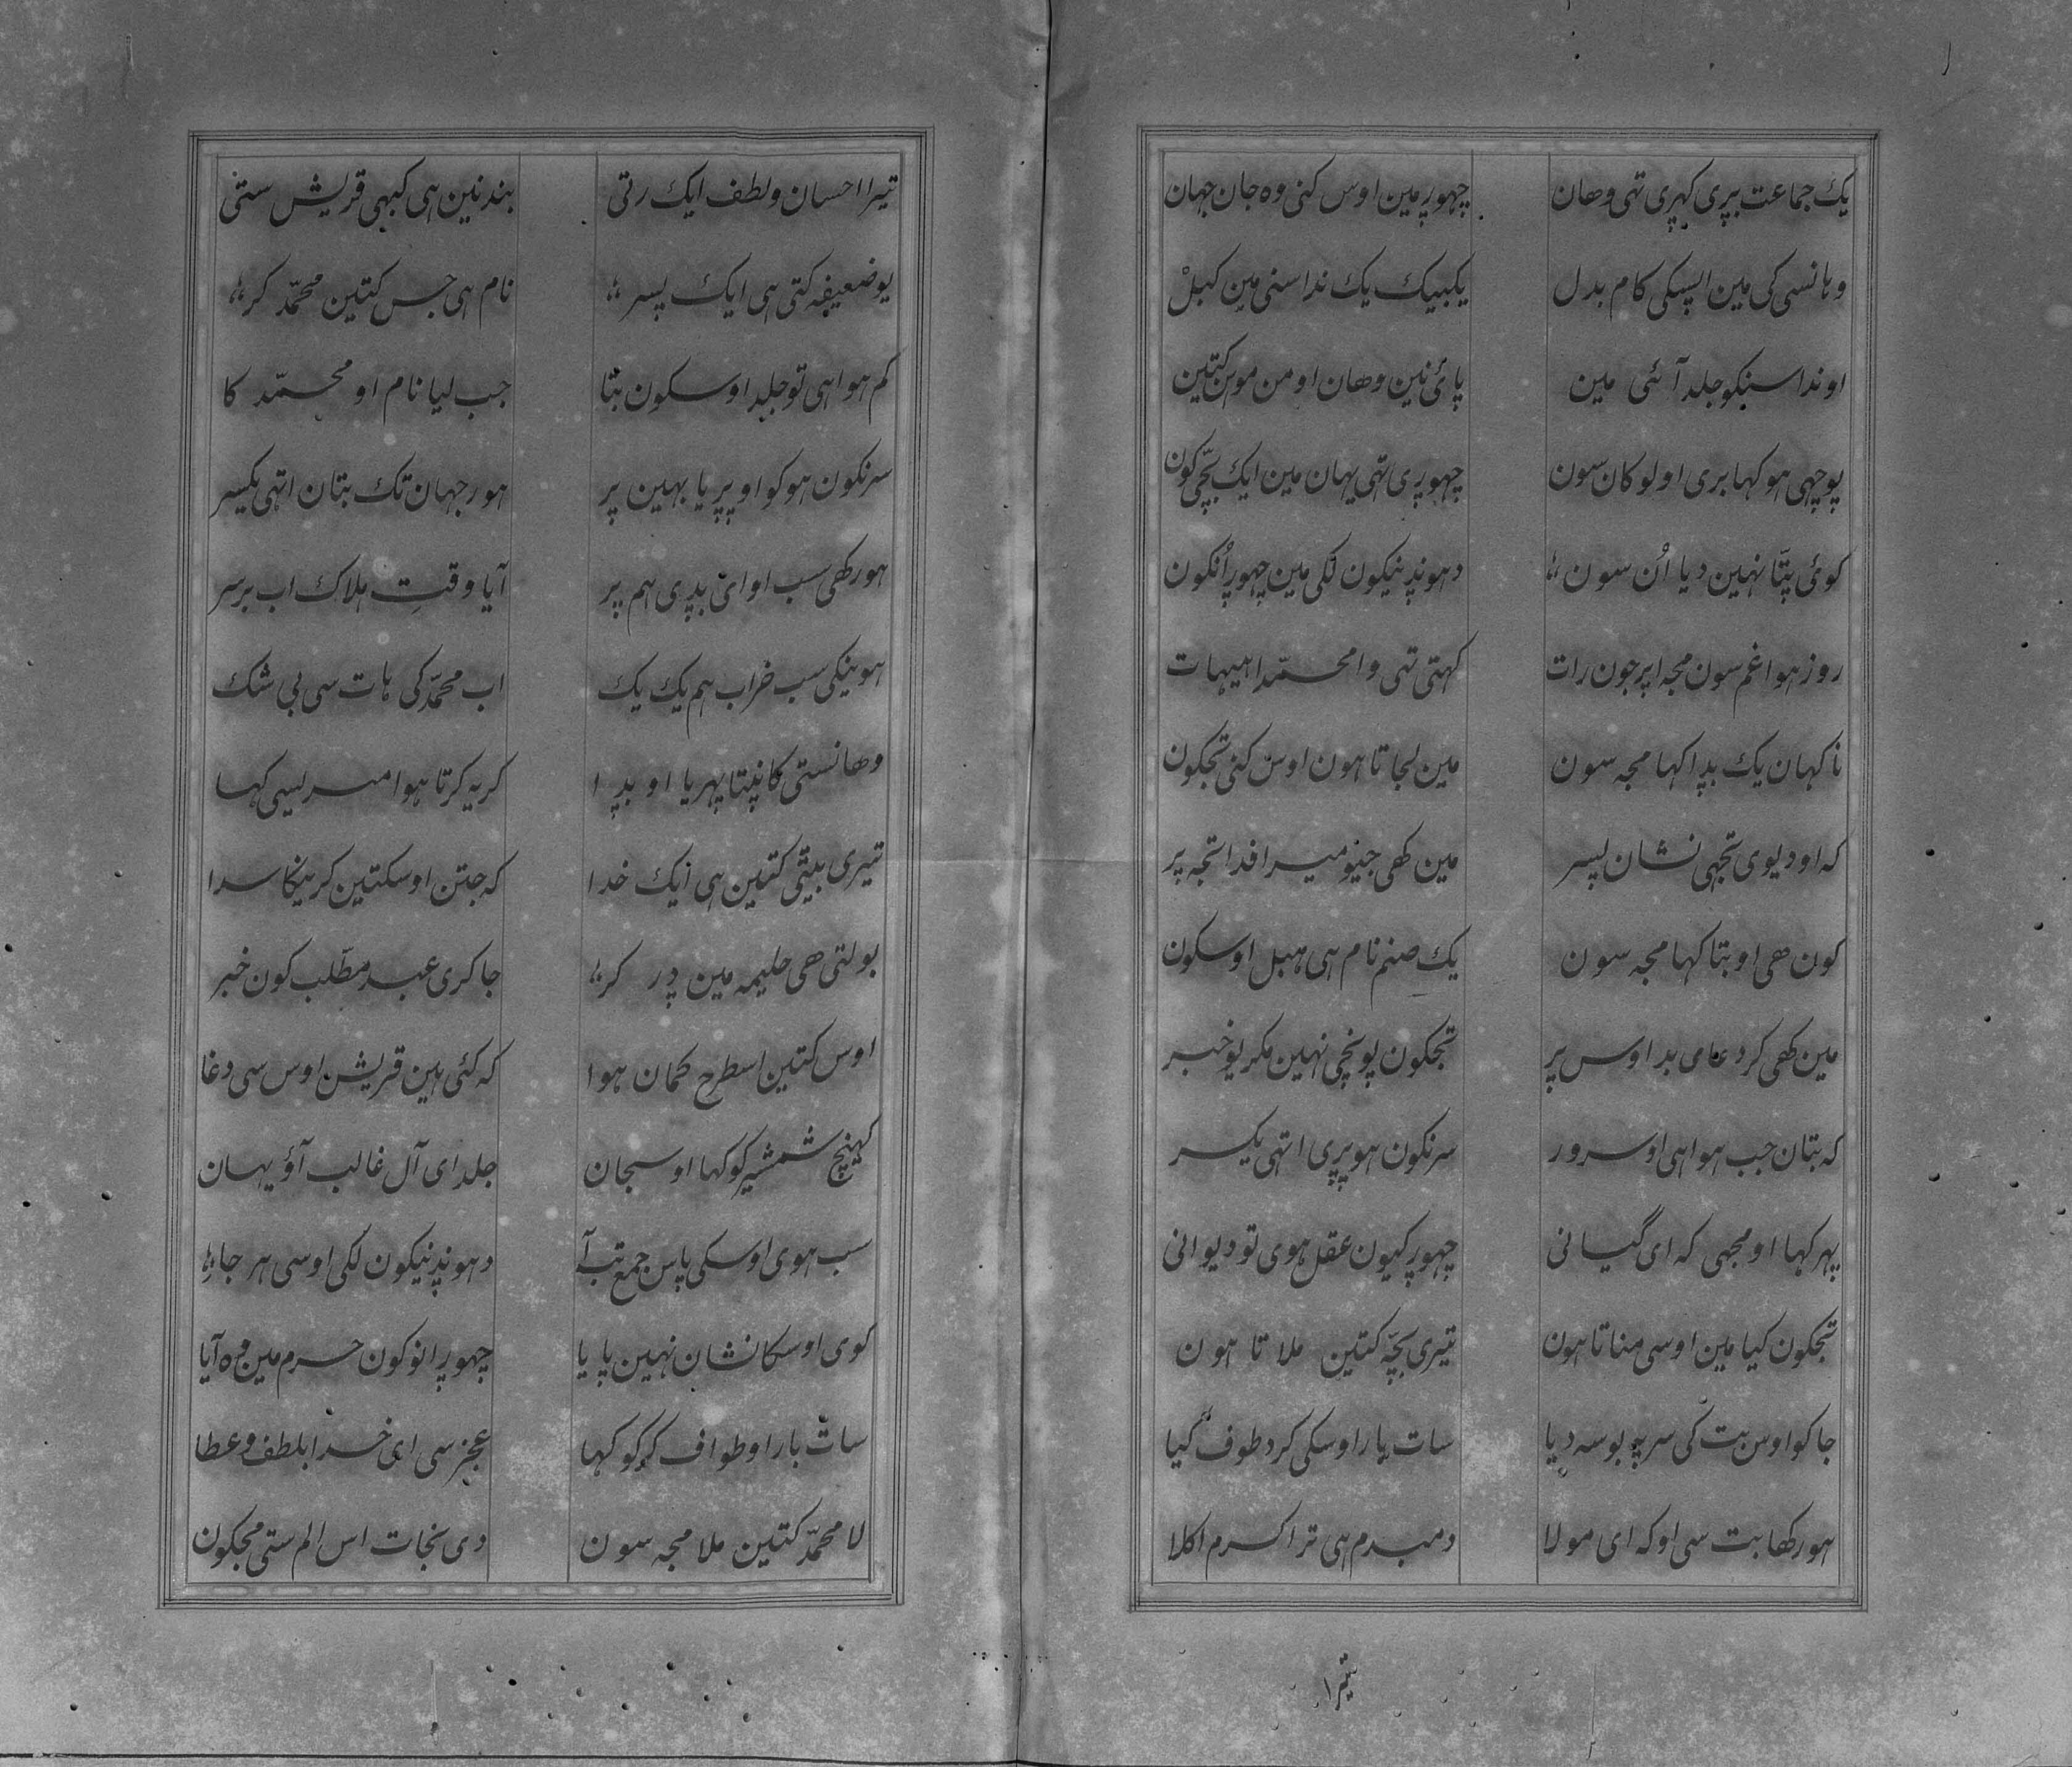 یک جماعت بری کهری تهی وهان چهور مین اوس کنی وه جان جهان
وهانسی کی مین اپسکی کام بدل یکبیک یک ندا سنی مین کبل
او ندا سنکو جلد آئی مین پائی نین وهان او من موہن کتین
پوچهی هو کها بری او لوکان سون چهوری تهی یهان مین ایک بچّی کون
کوئی پتّا نهین دیا اُن سون دهوندنیکون لکی مین چهور اُنکون
روز هوا غم سون مجه اپر جون رات کهتی تهی وا محمّدا هیهات
ناکهان یک بدا کها مجه سون مین لجاتا هون اوس کنی تجکون
که او دیوی تجهی نشان پسر مین کهی جنیو میرا فدا تجه پر
کون هی او بتا کها مجه سون یک صنم نام هی هبل اوسکون
مین کهی کر دعای بد اوس پر تجکون پونچی نهین مکر یو خبر
که بتان جب هوا هی او سرور سرنکون هو پری اتهی یکسر
پهر کها او مجهی که ای گیانی چهور کیون عقل هوی تو دیوانی
تجکون کیا مین اوسی مناتا هون تیری بچّه کتین ملاتا هون
جاکو اوس بت کی سر پہ بوسه دیا سات بار اوسکی کرد طوف کیا
هور کها بت سی او که ای مولا دمبدم هی ترا کرم اکلا
تیرا
تیرا احسان و لطف ایک رتی بند نین هی کبهی قریش ستی
یو ضعیفه کتی هی ایک پسر نام هی جس کتین محمّد کر
کم هوا هی تو جلد اوسکون بتا جب لیا نام او محمّد کا
سرنکون هوکو او پریا بهین پر هور جهان تک بتان اتهی یکسر
هور کهی سب او ای بدی هم پر آیا وقتِ هلاک اب بر سر
هوینکی سب خراب هم یک یک اب محمّد کی هات سی بی شک
وهانستی کانپتا پهریا او بدا کریه کرتا هوا میرسی کها
تیری بیتی کتین هی ایک خدا که جتن اوسکتین کریکا سدا
بولتی هی حلیمه مین در کر جا کری عبد مطّلب کون خبر
اوس کتین اسطرح کمان هوا که کئی هین قریش اوس سی دغا
کهینچ شمشیر کو کها او سجان جلد ای آل غالب آؤ یهان
سب هوی اوسکی پاس جمع تب آ دهوندنیکون لکی اوسی هر جا
کوی اوسکا نشان نهین پایا چهور انو کون حرم مین وه آیا
سات بار او طواف کر کو کها عجز سی ای خدا بلطف و عطا
لا محمّد کتین ملا مجه سون دی نجات اس الم ستی مجکون